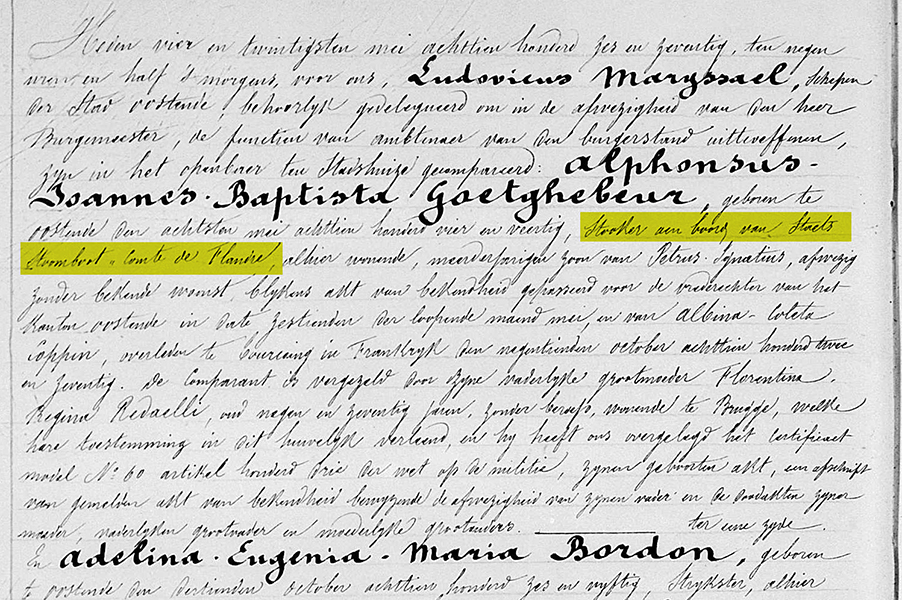 Heden vier en twintigsten mei achttien honderd zes en zeventig, ten negen
uren en half 's morgens, voor ons, Ludovicus Maryssael, Schepen
der Stad oostende, behoorlyk gedelegueerd om in de afwezigheid van den heer
Burgemeester, de functien van ambtenaer van den burgerstand uitteoeffenen,
zyn in het openbaer ten Stadshuize gecompareerd: Alphonsus-
Joannes-Baptista Goetghebeur, geboren te
oostende den achtsten mei achttien honderd vier en veertig, Stooker aen boord van Staets
Stoomboot "Comte de Flandre, alhier wonende, meerderjarigen zoon van Petrus-Ignatius, afwezig
zonder bekende woonst, blykens akt van bekendheid gepasseerd voor de vrederechter van het
Kanton oostende in date zestienden der loopende maand mei, en van Albina-Coleta
Coppin overleden te Tourcoing in Frankryk den negentienden october achttien honderd twee
en zeventig. De Comparant is vergezeld door zyne vaderlyke grootmoeder Florentina-
Regina Redaelli, oud negen en zeventig jaren, zonder beroep, wonende te Brugge, welke
hare toestemming in dit huwelyk verleend, en hy heeft ons overgelegd het certificaet
model No 60 artikel honderd drie der wet op de militie, zynen geboorten akt, een afschrift
van gemelden akt van bekendheid bewyzende de afwezigheid van zynen vader en de doodakten zyner
moeder, vaderlyken grootvader en moederlyke grootouders. ter eene zyde.
En Adelina-Eugenia-Maria Bordon, geboren
t' oostende den dertienden october achttien honderd zes en vyftig, Strykster, alhier